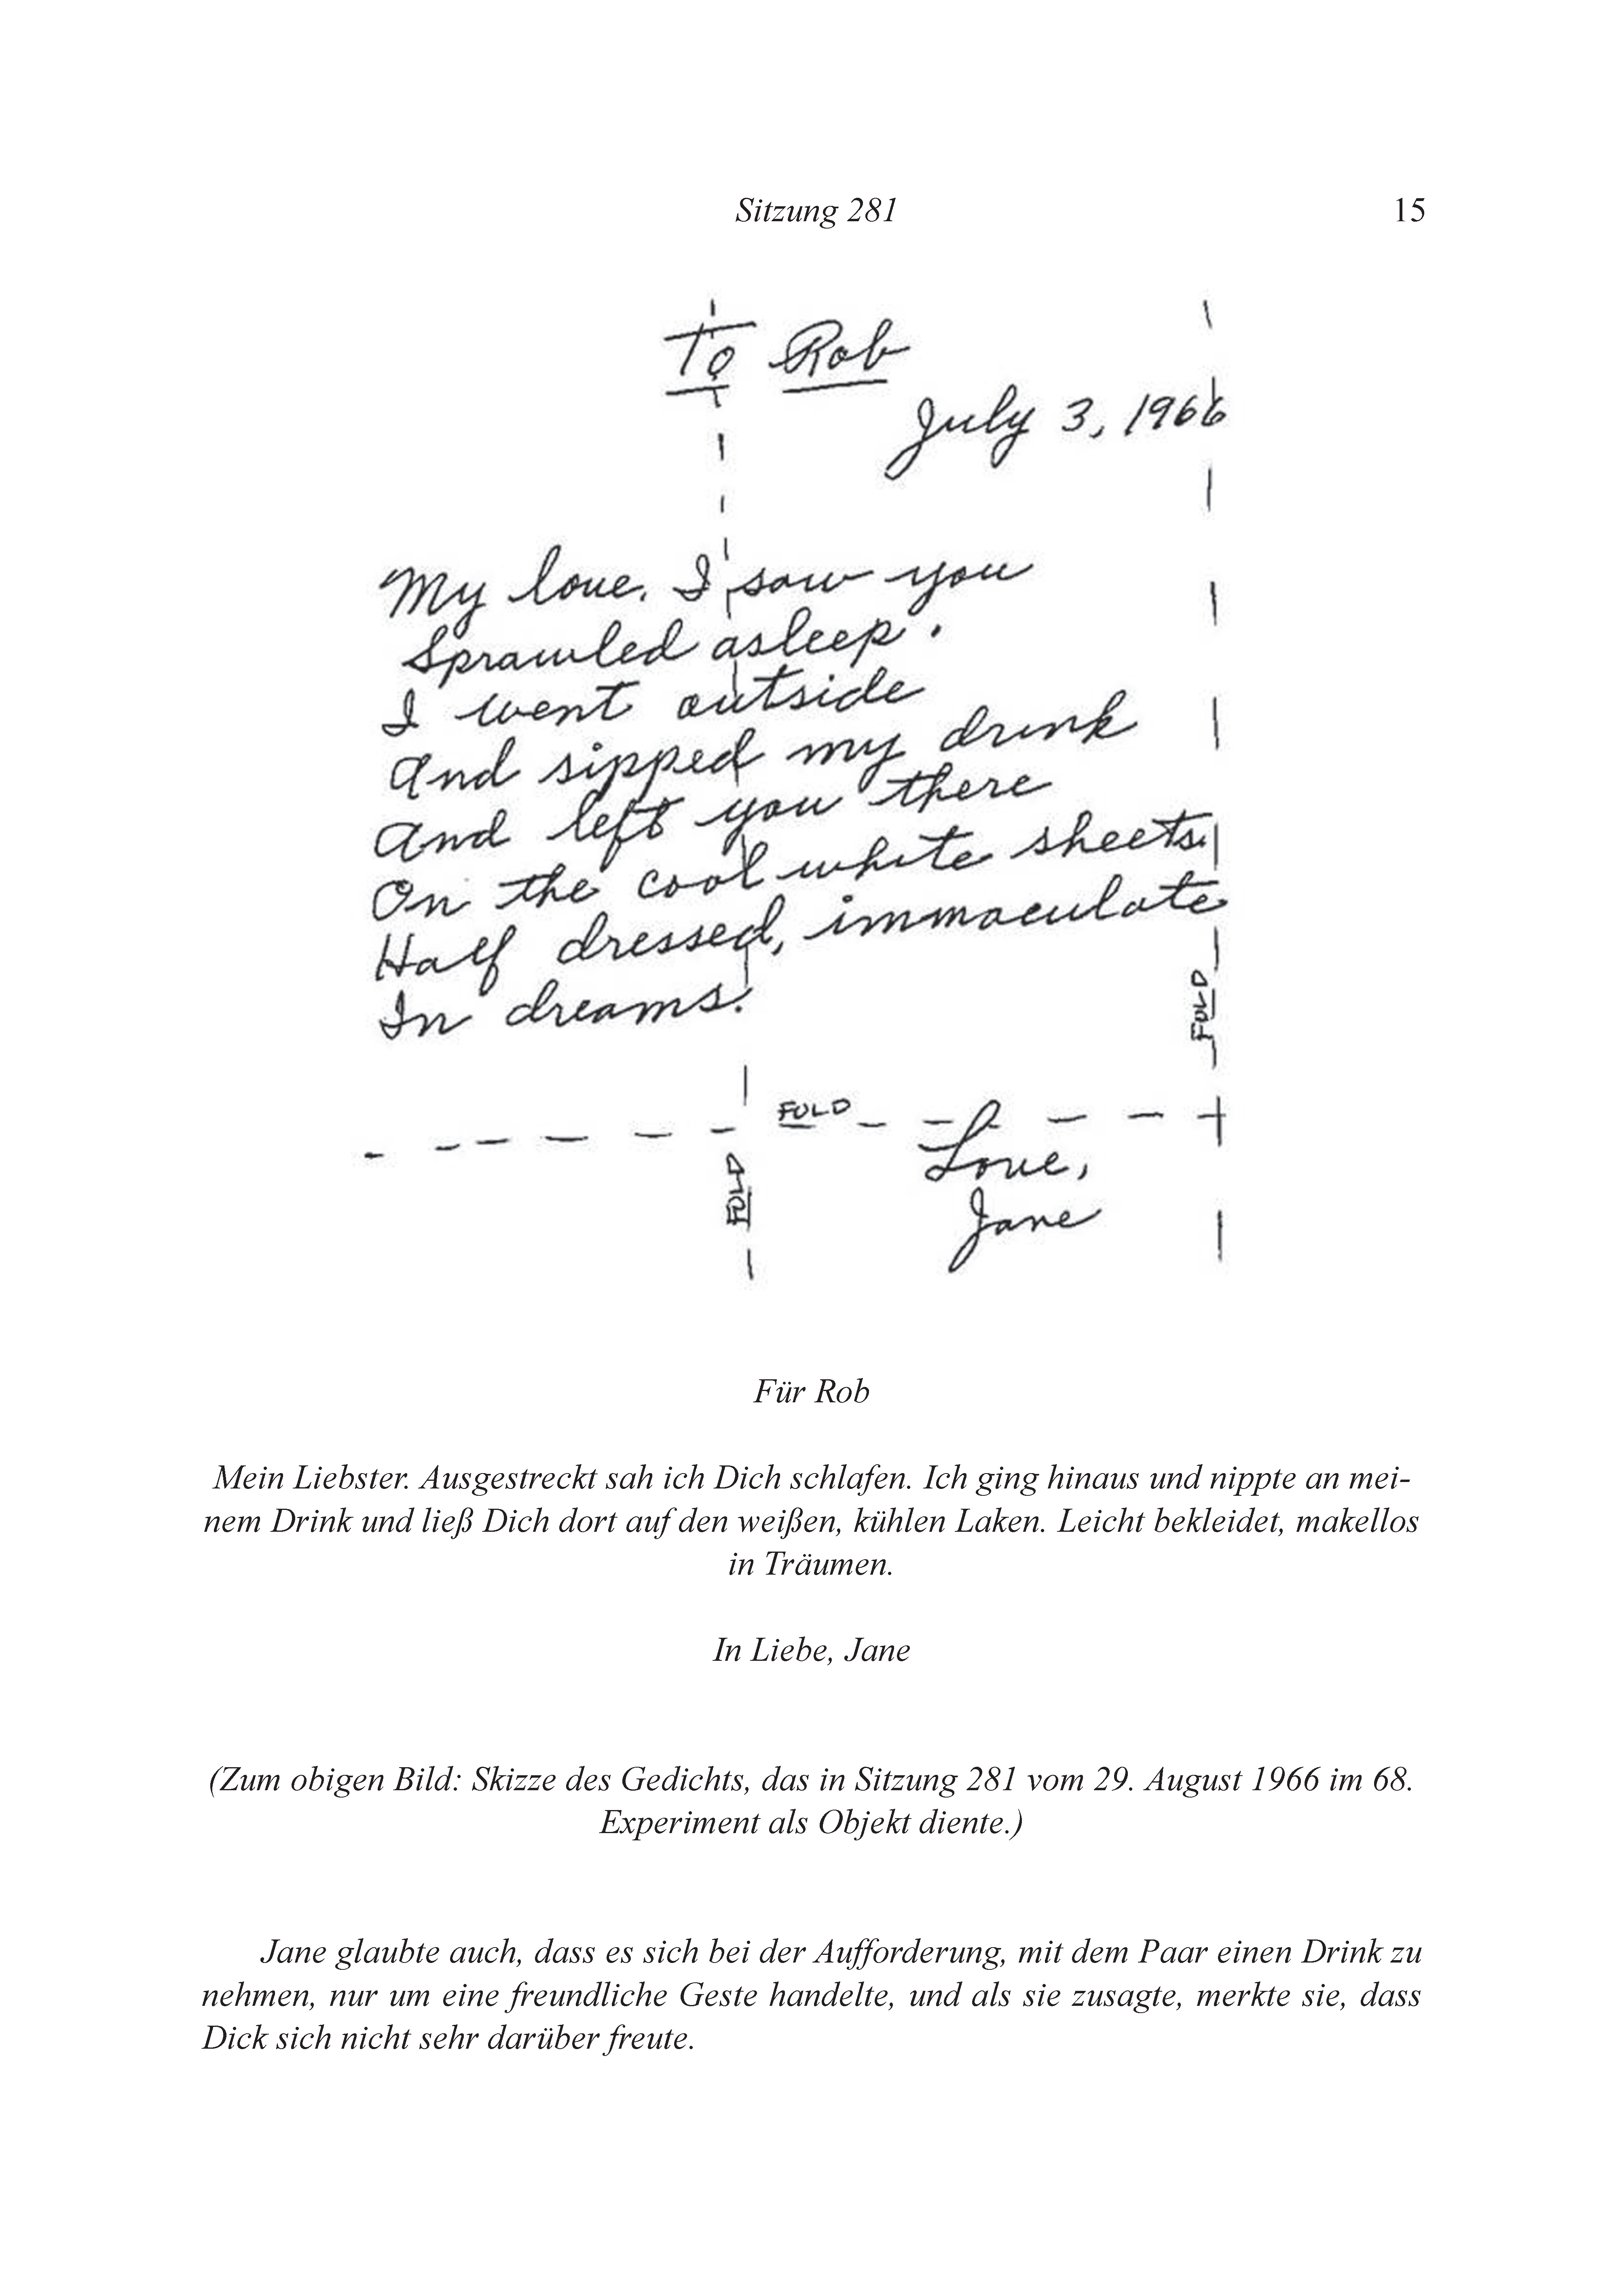 Sitzung 281 15
To Rob
July 3, 1966
My love. I saw you
Sprawled asleep.
I went outside
And sipped my drink
And left you there
On the cool white sheets.
Half dressed, immaculate
In dreams.
FOLD
FOLD
Love,
FOLD
Jane
Für Rob
Mein Liebster. Ausgestreckt sah ich Dich schlafen. Ich ging hinaus und nippte an mei-
nem Drink und ließ Dich dort auf den weißen, kühlen Laken. Leicht bekleidet, makellos
in Träumen.
In Liebe, Jane
(Zum obigen Bild: Skizze des Gedichts, das in Sitzung 281 vom 29. August 1966 im 68.
Experiment als Objekt diente.)
Jane glaubte auch, dass es sich bei der Aufforderung, mit dem Paar einen Drink zu
nehmen, nur um eine freundliche Geste handelte, und als sie zusagte, merkte sie, dass
Dick sich nicht sehr darüber freute.